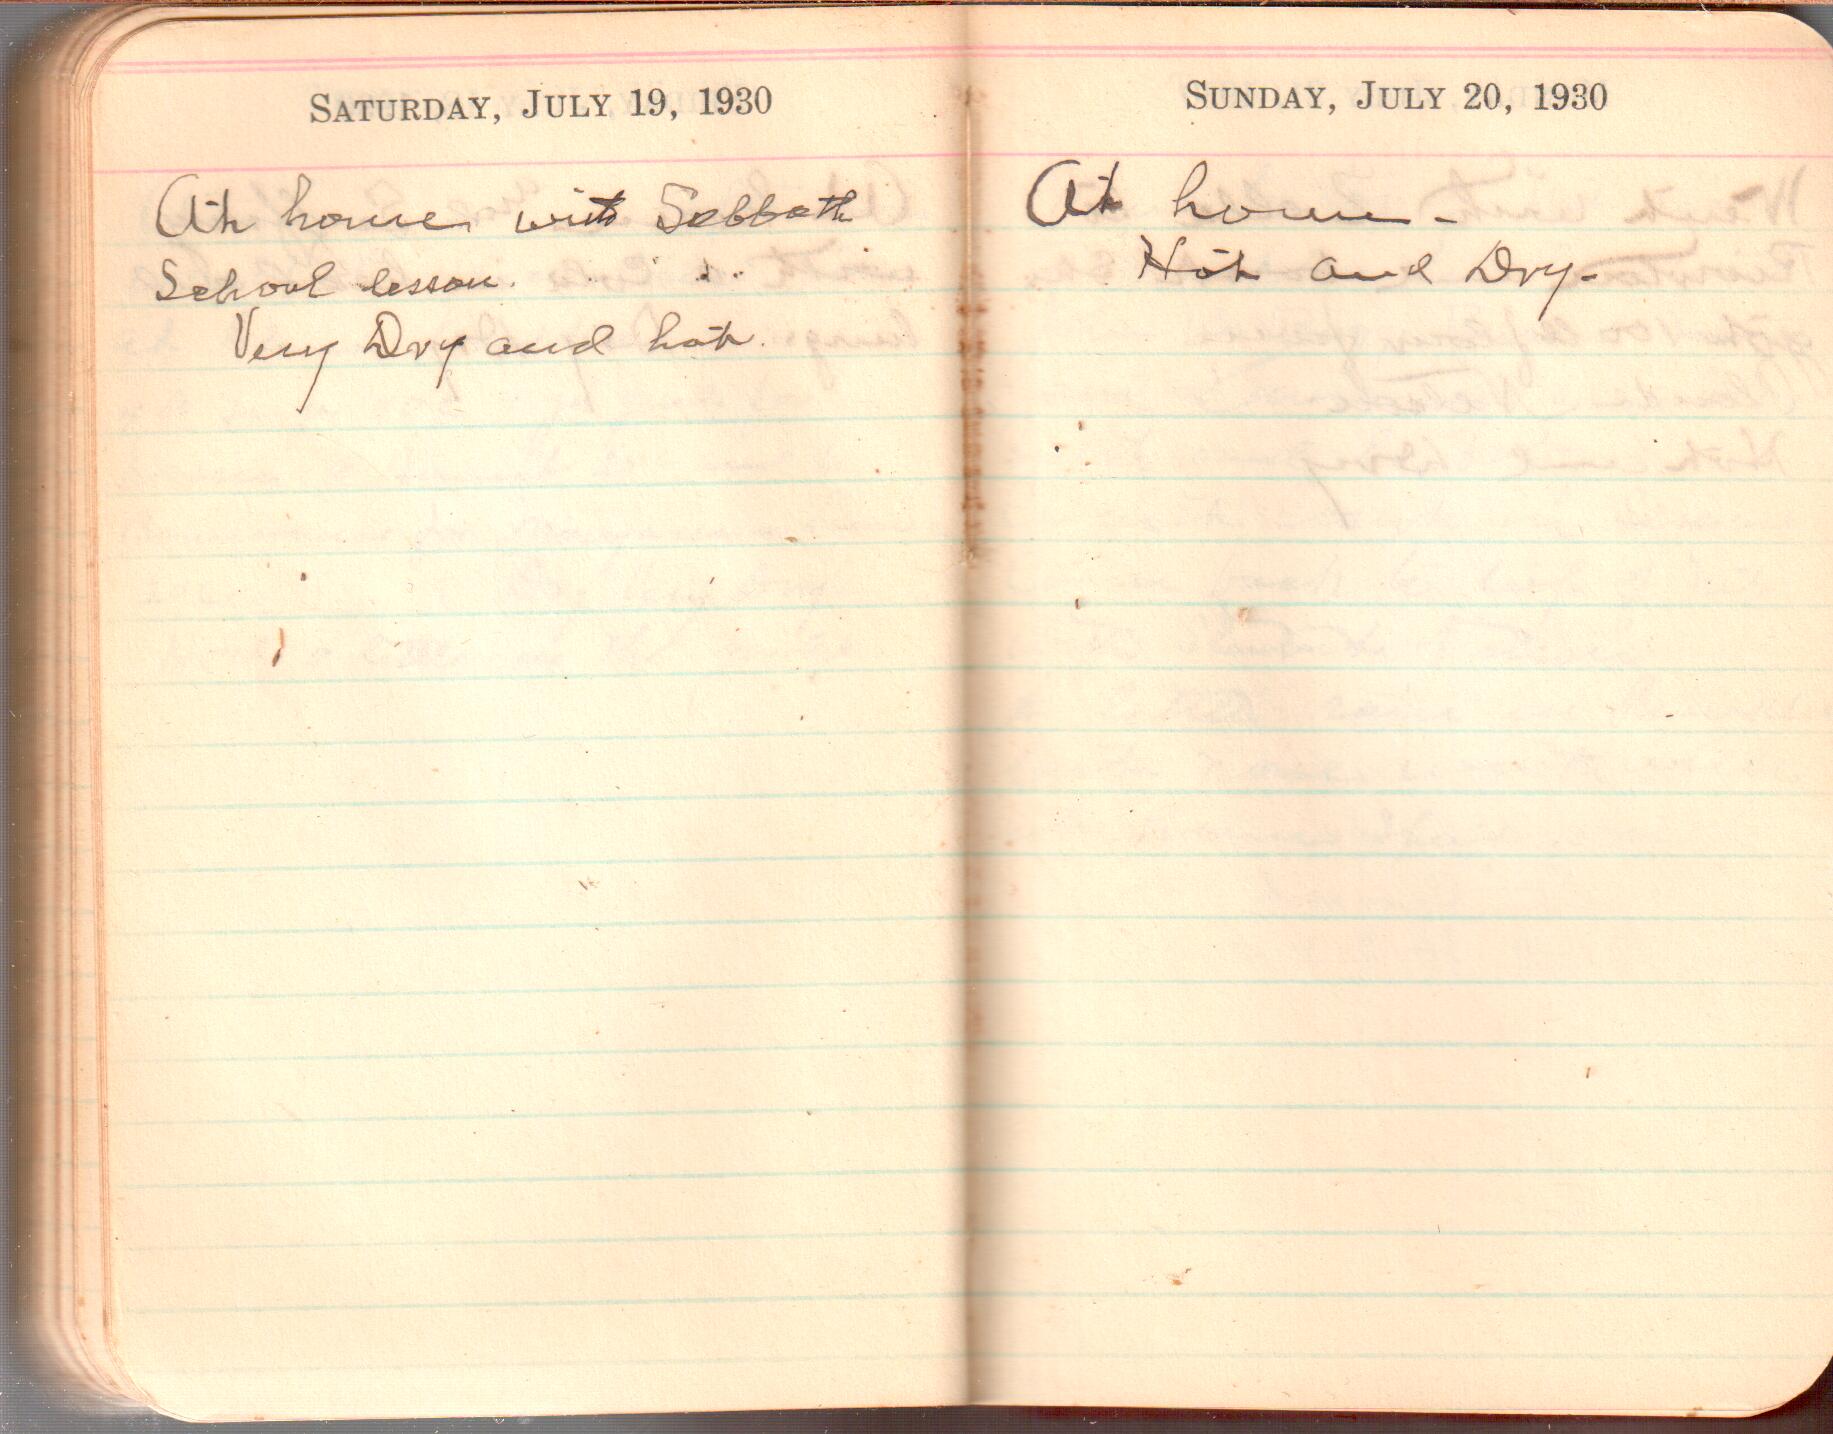 SATURDAY, JULY 19, 1930
At home with Sabbath
School lesson.
Very Dry and hot.
SUNDAY, JULY 20, 1930
At home -
Hot and Dry -